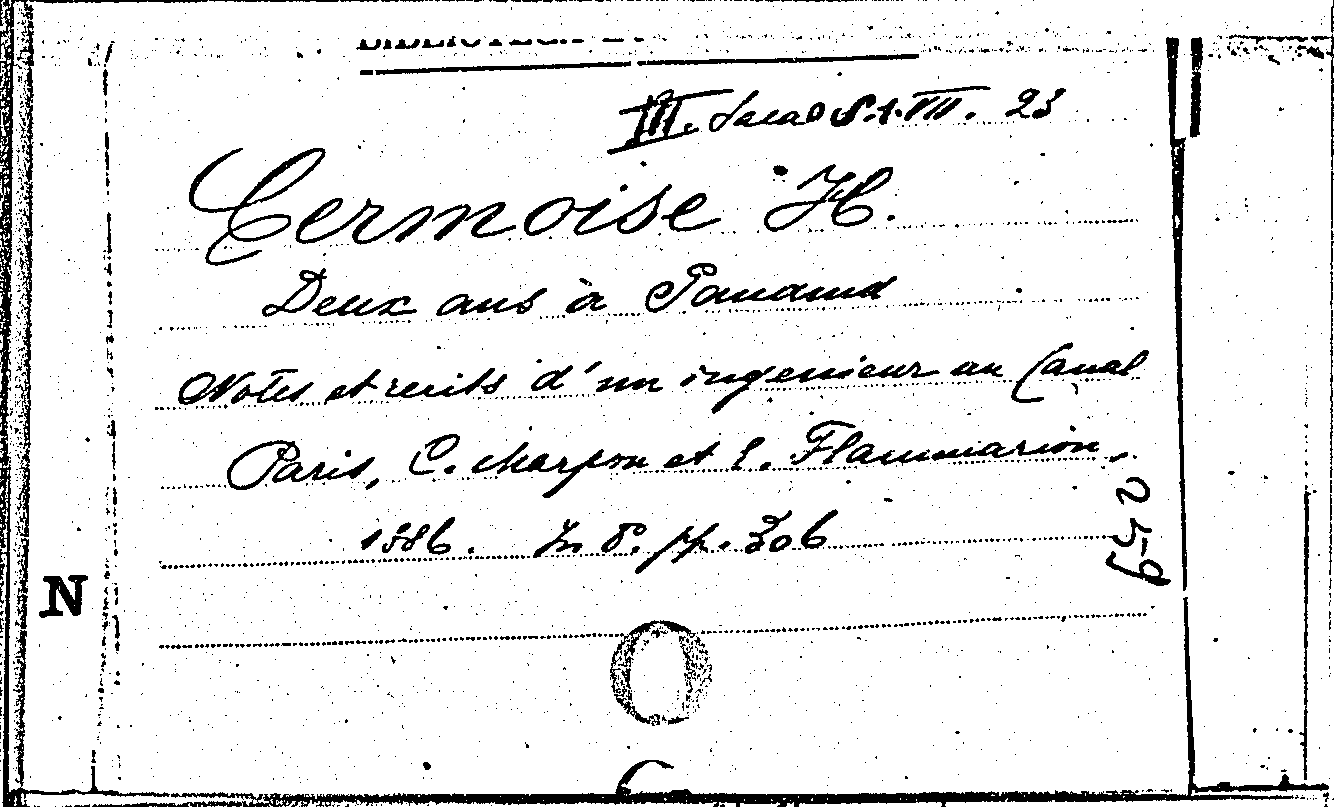 III. Sala S.1.VII. 23
Cermoise H.
Deux ans à Panama
Notes et recits d'un ingenieur au Canal
Paris, C. Marpon et E. Flammarion,
1886. In 8. pp. 306
N